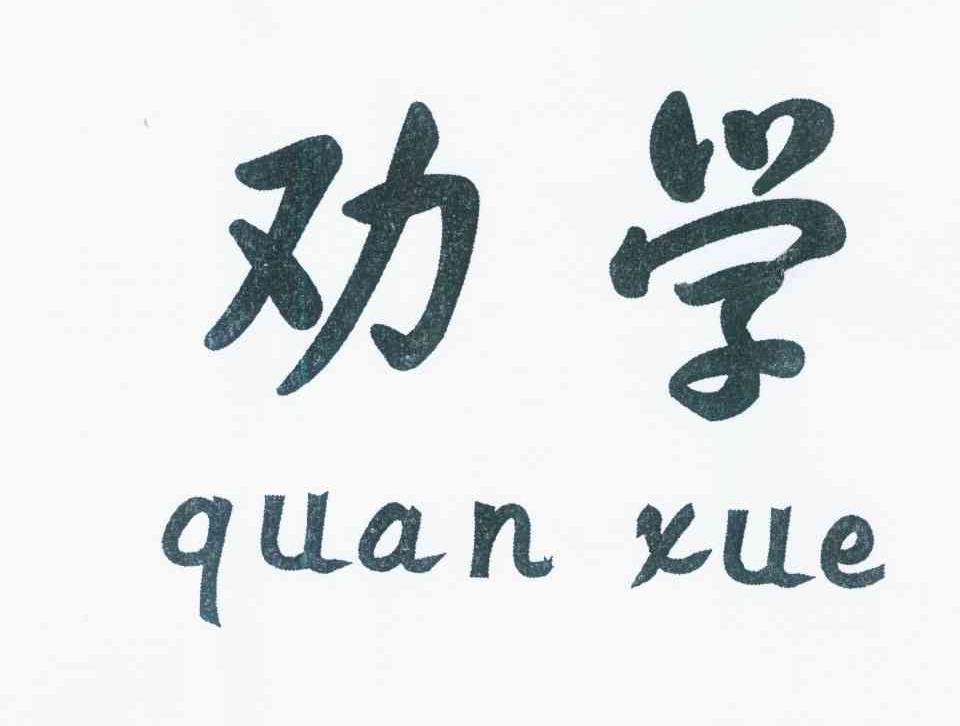 劝学
quan xue